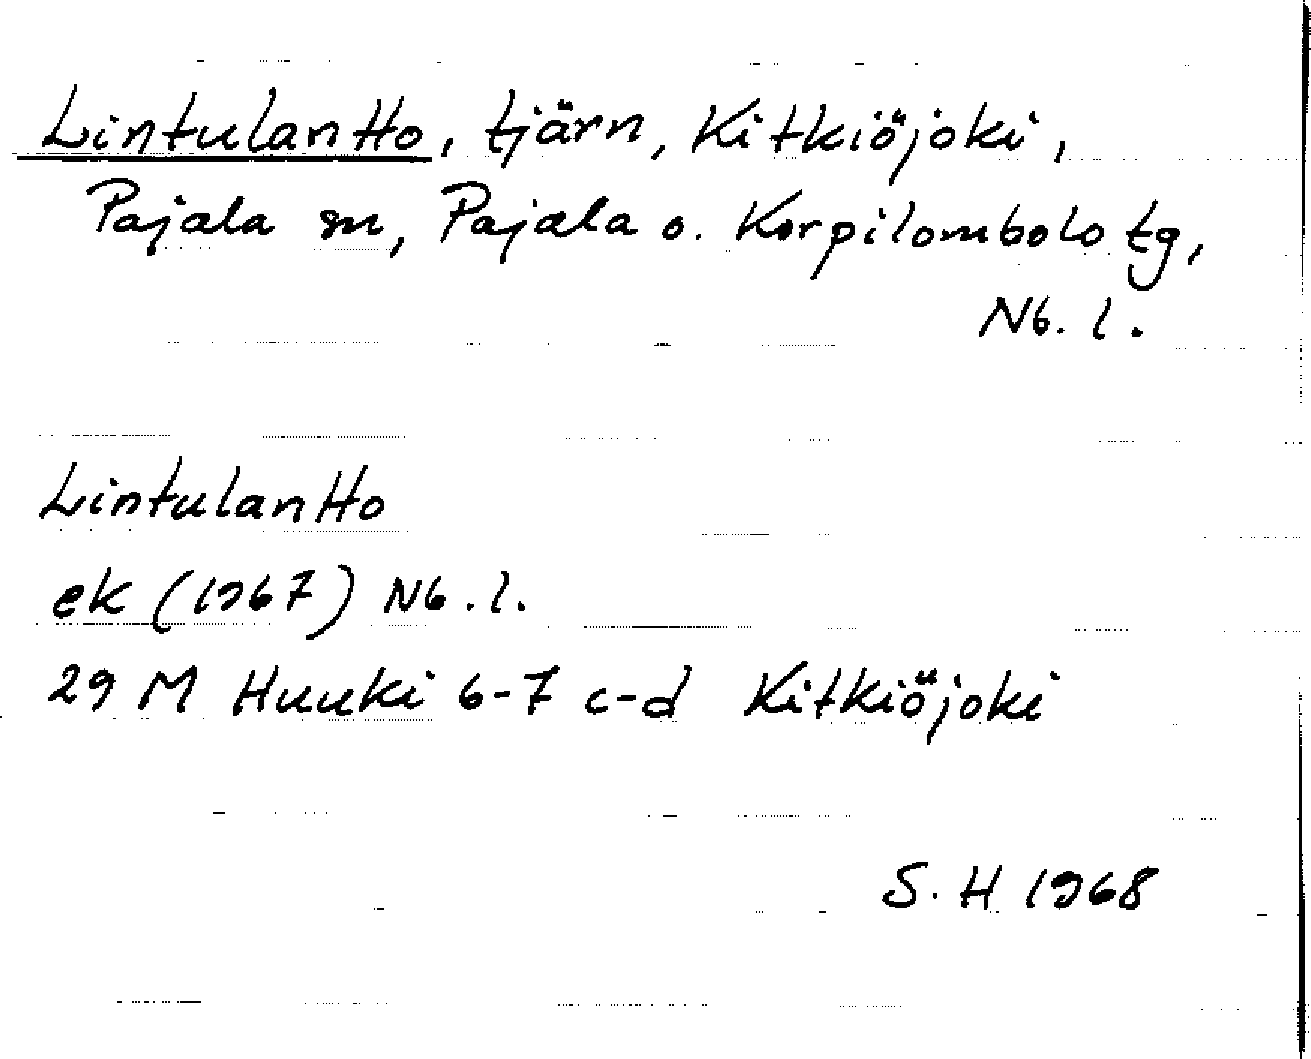 Lintulantto, tjärn, Kitkiöjoki,
Pajala sn, Pajala o. Korpilombolo tg,
Nb. l.
Lintulantto
ek (1967) Nb. l.
29 M Huuki 6-7 c-d Kitkiöjoki
S. H 1968